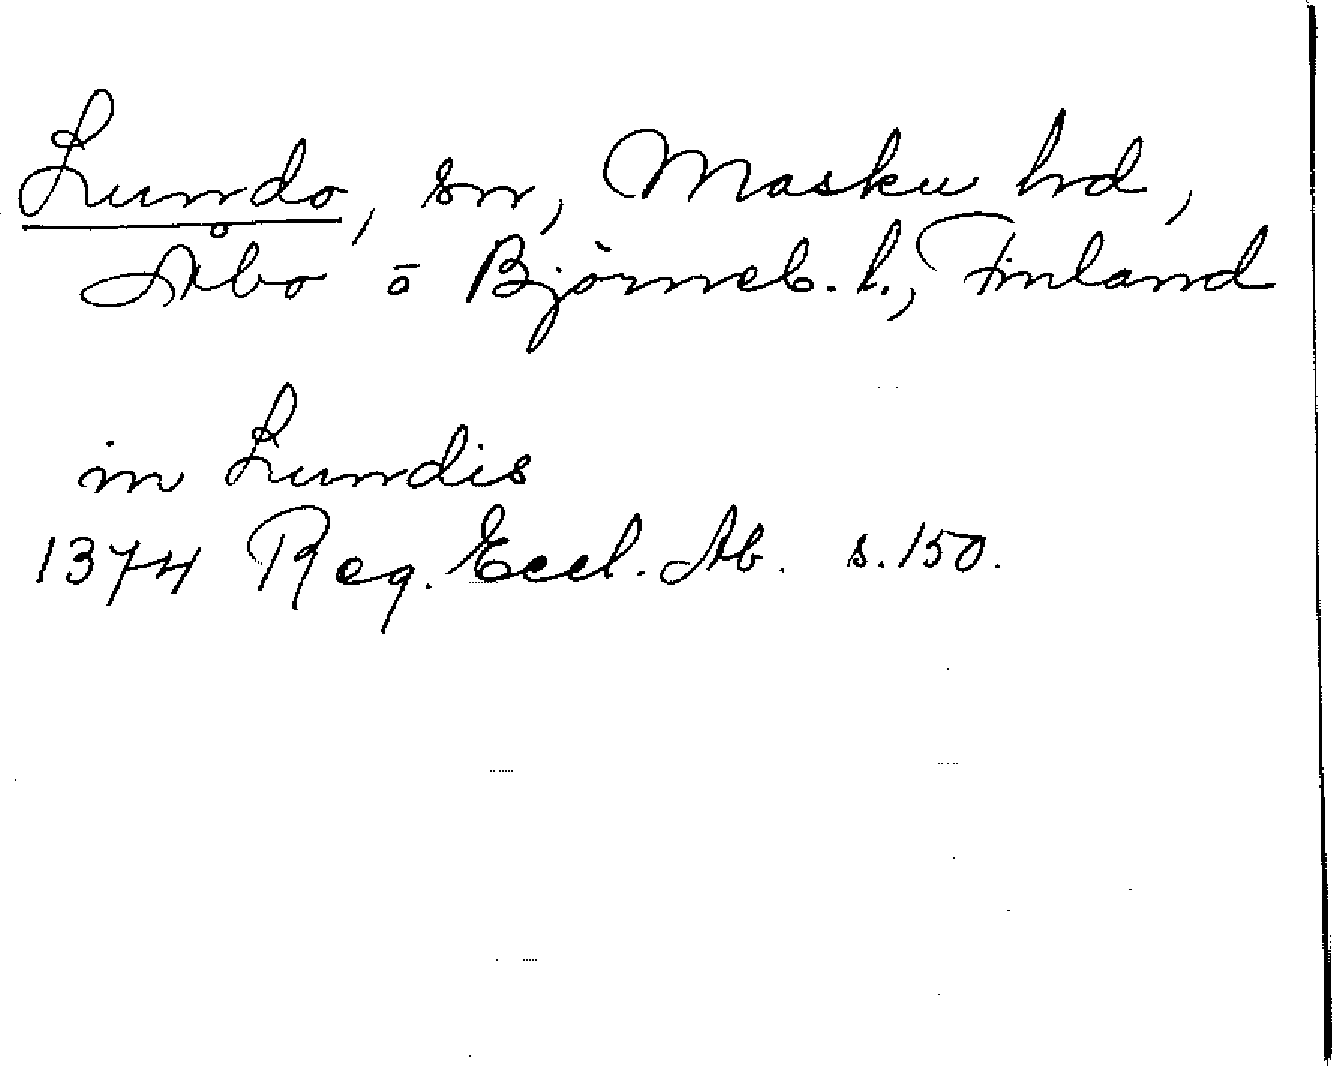 Lundo, sn, Masku hd,
Åbo ō Björneb. l., Finland
in Lundis
1374 Reg. Eccl. Ab. s. 150.